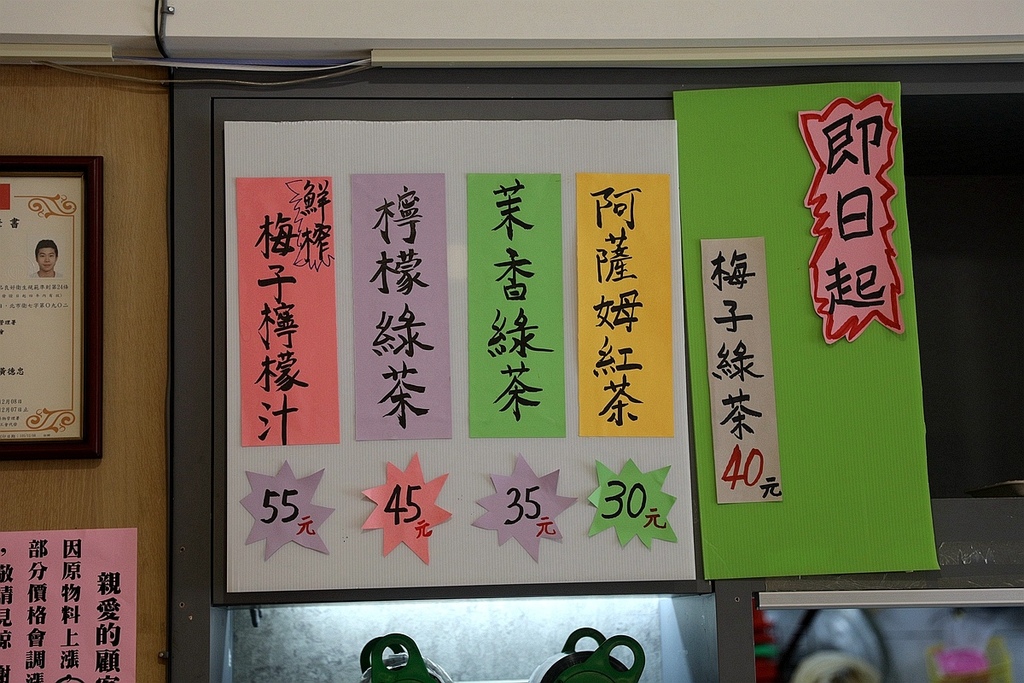 即日起
梅子綠茶
40元
阿薩姆紅茶
30元
茉香綠茶
35元
檸檬綠茶
45元
鮮榨
梅子檸檬汁
55元
親愛的顧客
因原物料上漲
部分價格會調漲
，敬請見諒
黃德忠